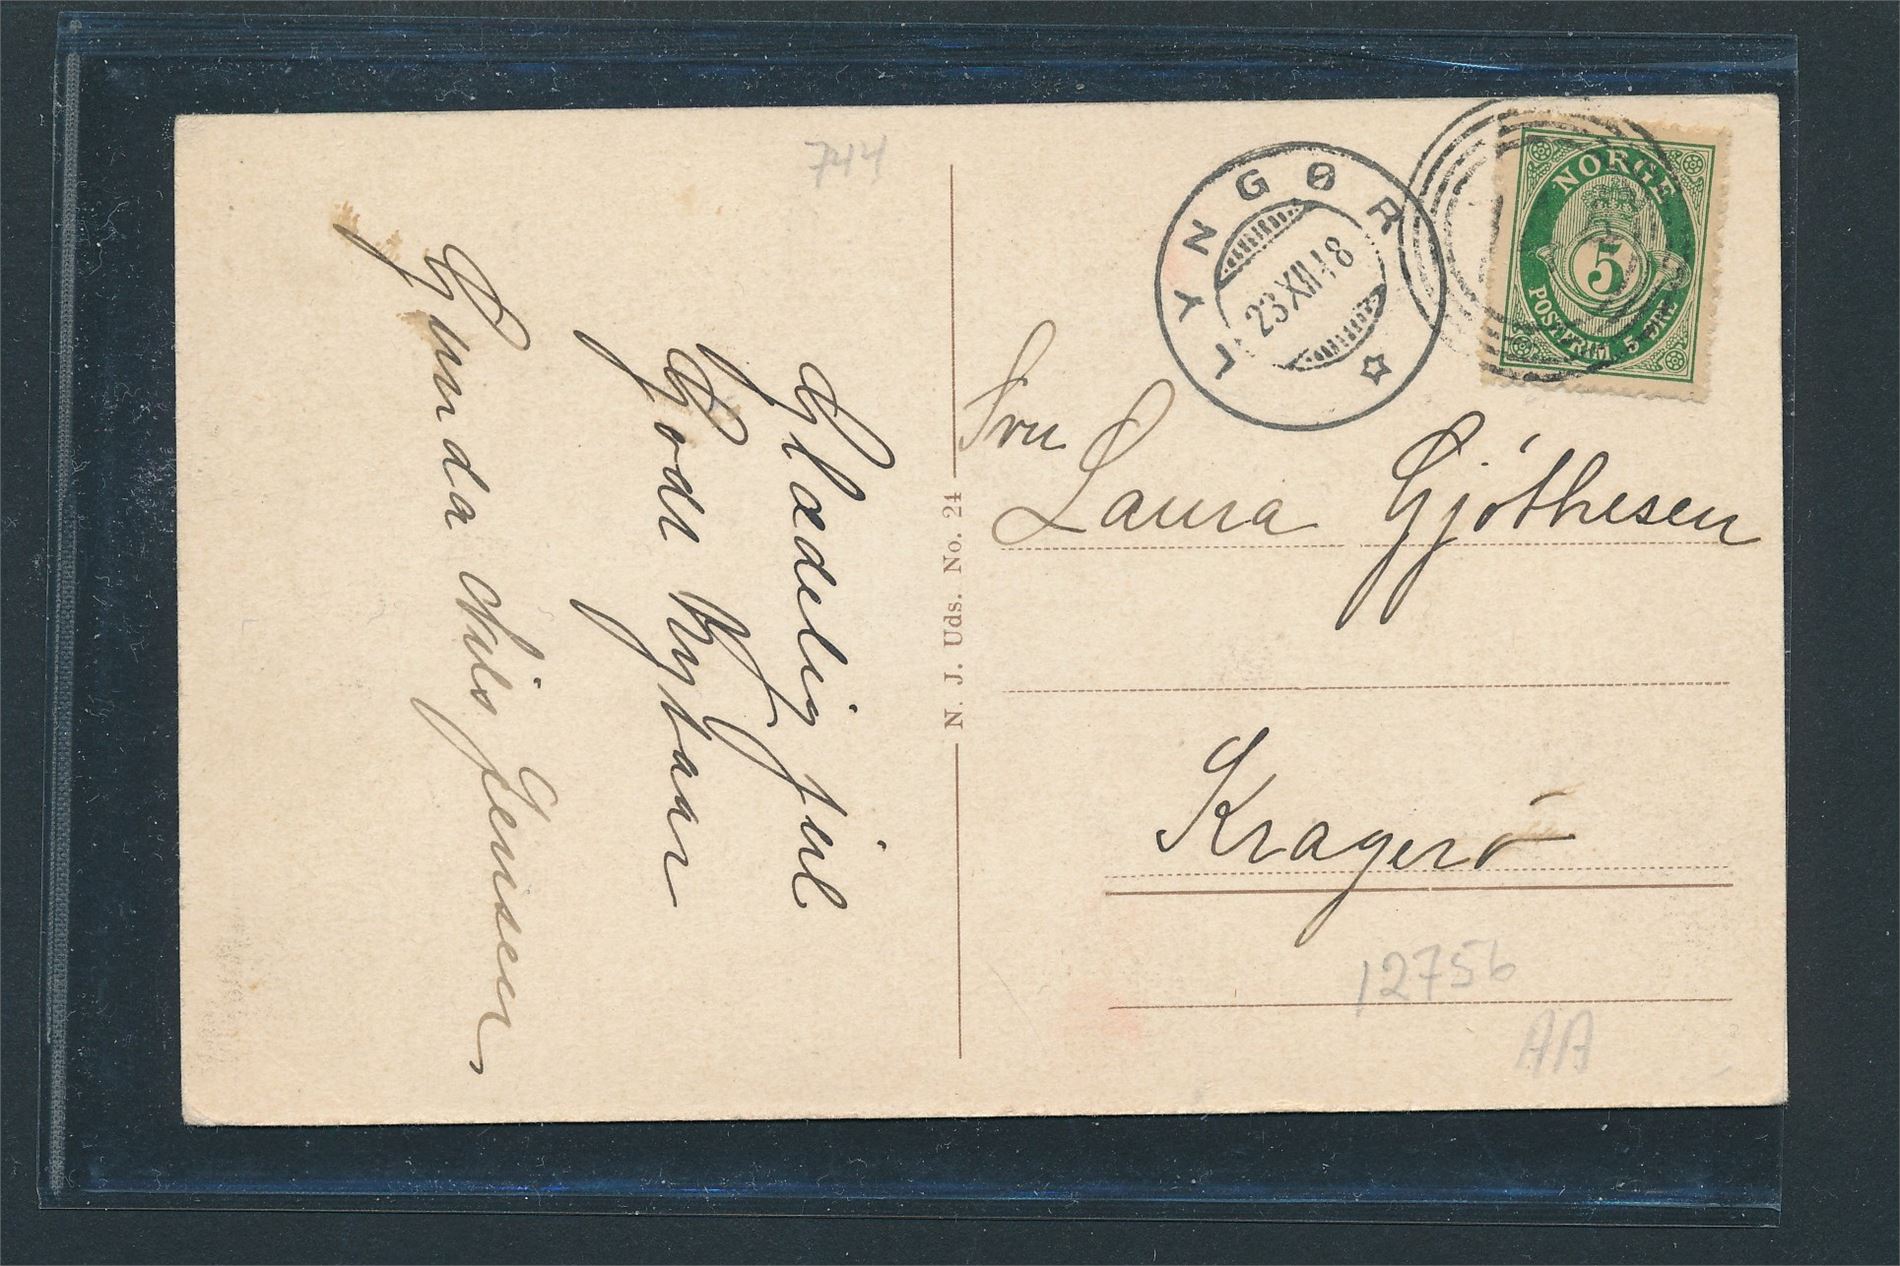 744
Glædelig jul
Godt Nytaar
Gunda Nils Jensen
N. J. Uds. No. 24
LYNGØR
23 XII 18
NORGE
5
POSTFRIM. 5 ØRE
Fru
Laura Gjöthesen
Kragerö
12756
AA